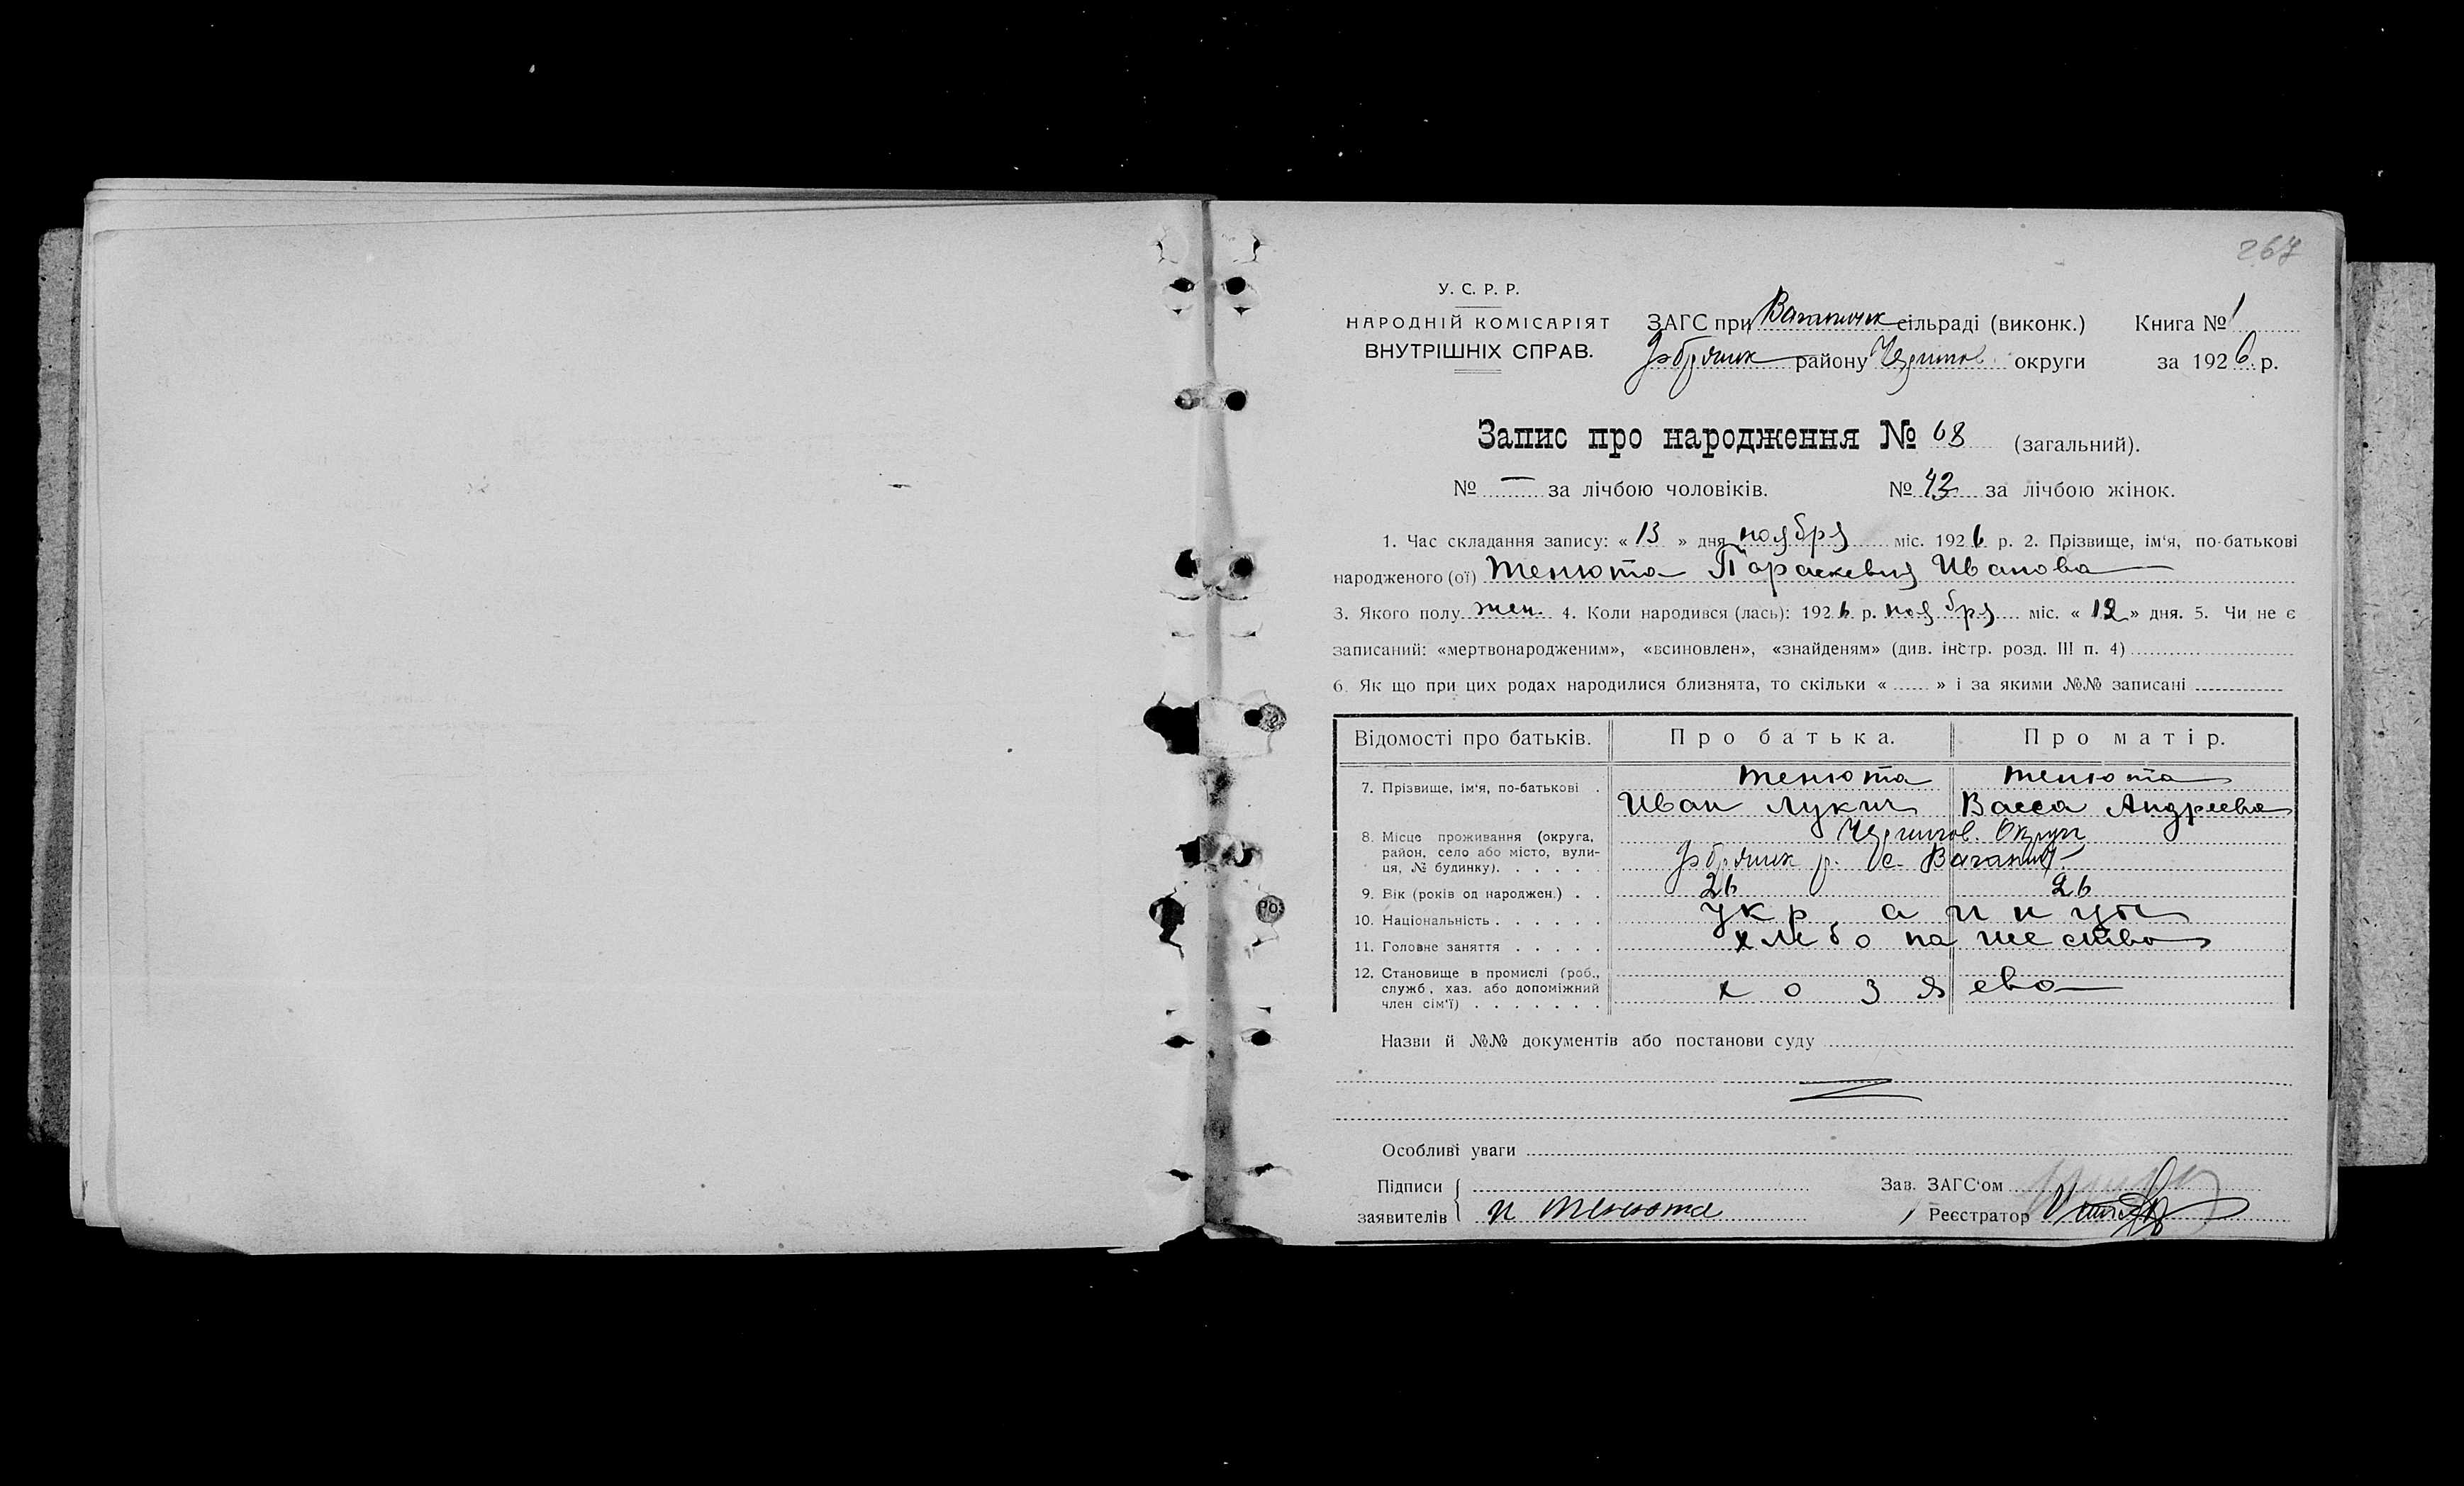 267
У. С. Р. Р.
НАРОДНІЙ КОМІСАРІЯТ
ВНУТРІШНІХ СПРАВ.
ЗАГС при Ваганичск сільраді (виконк.) Книга № 1
району Чернигов. округи за 1926 р.
Запис про народження № 68 (загальний).
№ — за лічбою чоловіків. № 42 за лічбою жінок.
1. Час складання запису: « 13 » дня ноября міс. 1926 р. 2. Прізвище, ім'я, по-батькові
народженого (ої) Тенюта Параскевия Иванова
3. Якого полу жен. 4. Коли народився (лась): 1926 р. ноября міс. « 12 » дня. 5. Чи не є
записаний: «мертвонародженим», «всиновлен», «знайденям» (див. інстр. розд. III п. 4)
6. Як що при цих родах народилися близнята, то скільки « » і за якими №№ записані
Відомості про батьків. Про батька. Про матір.
7. Прізвище, ім'я, по-батькові . Тенюта Иван Лукич Тенюта Васса Андреева
8. Місце проживання (округа,
район, село або місто, вули-
ця, № будинку). . . . . .
Чернигов. Округи
р. с. Ваганичи
9. Вік (років од народжен.) . . 26 26
10. Національність . . . . . . украинцы
11. Головне заняття . . . . . хлебопашество
12. Становище в промислі (роб.,
служб, хаз. або допоміжний
член сім'ї) . . . . . . .
хозяева
Назви й №№ документів або постанови суду
Особливі уваги
Підписи
заявителів И Тенюта
Зав. ЗАГС'ом
Реєстратор